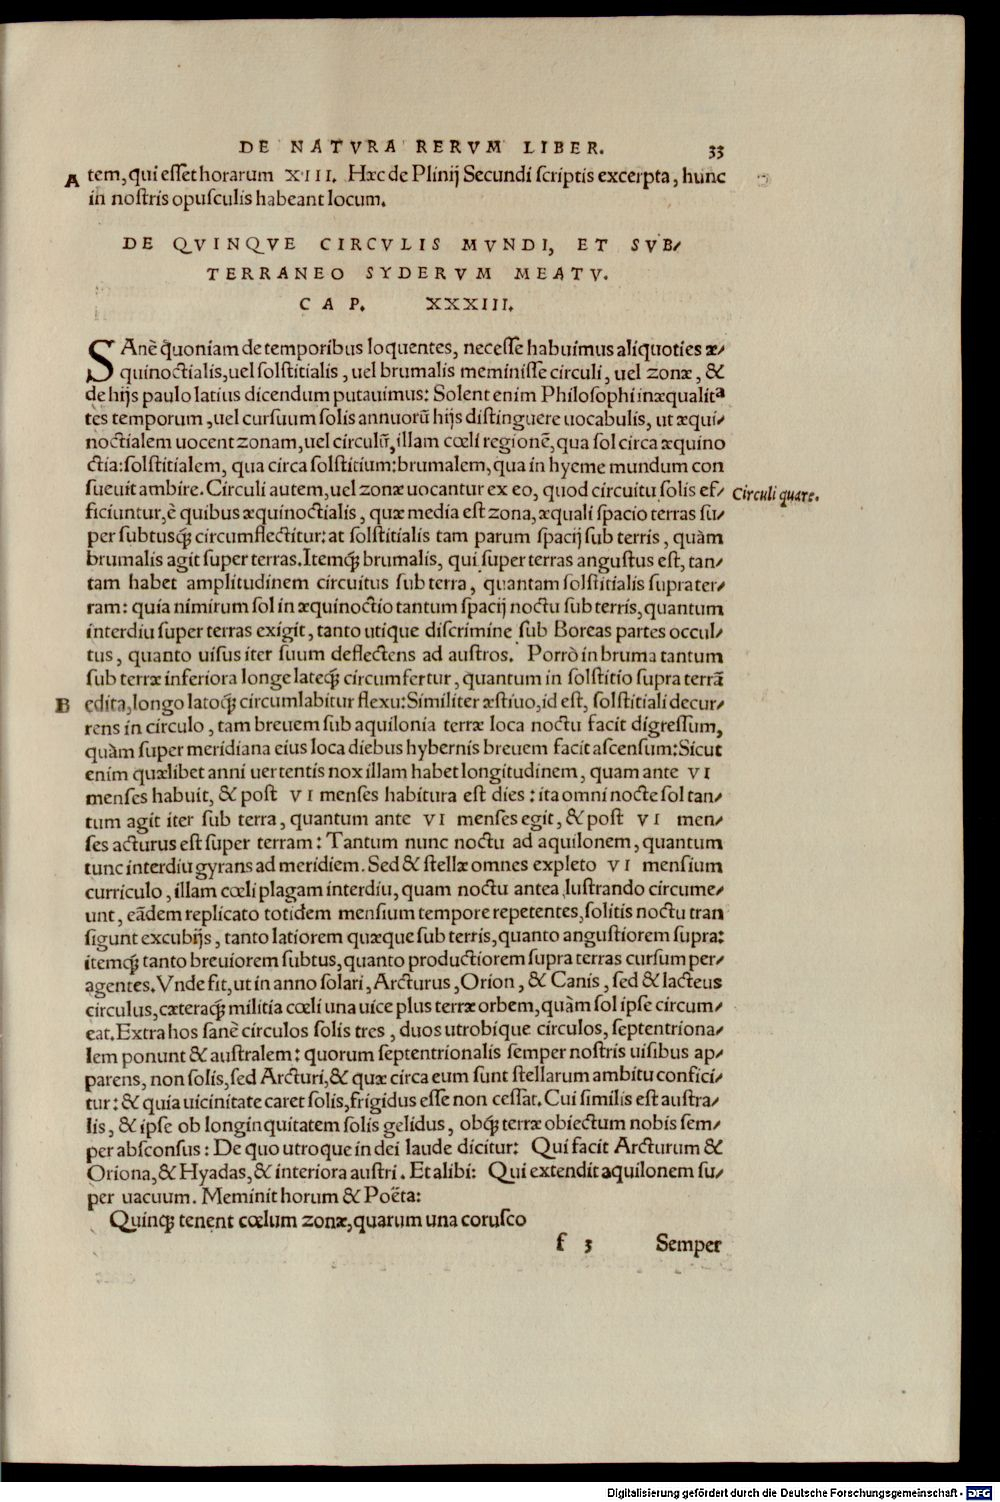 DE NATVRA RERVM LIBER. 33
A tem, qui esset horarum XIII. Hæc de Plinij Secundi scriptis excerpta, hunc
in nostris opusculis habeant locum.
DE QVINQVE CIRCVLIS MVNDI, ET SVB/
TERRANEO SYDERVM MEATV.
CAP. XXXIII.
SAnè quoniam de temporibus loquentes, necesse habuimus aliquoties æ/
quinoctialis, uel solstitialis, uel brumalis meminisse circuli, uel zonæ, &
de hijs paulo latius dicendum putauimus: Solent enim Philosophi inæqualita
tes temporum, uel cursuum solis annuorũ hijs distinguere uocabulis, ut æqui/
noctialem uocent zonam, uel circulũ, illam cœli regionẽ, qua sol circa æquino
ctia: solstitialem, qua circa solstitium: brumalem, qua in hyeme mundum con
sueuit ambire. Circuli autem, uel zonæ uocantur ex eo, quod circuitu solis ef/
Circuli quare.
ficiuntur, è quibus æquinoctialis, quæ media est zona, æquali spacio terras su/
per subtusq́; circumflectitur: at solstitialis tam parum spacij sub terris, quàm
brumalis agit super terras. Itemq́; brumalis, qui super terras angustus est, tan/
tam habet amplitudinem circuitus sub terra, quantam solstitialis supra ter/
ram: quia nimirum sol in æquinoctio tantum spacij noctu sub terris, quantum
interdiu super terras exigit, tanto utique discrimine sub Boreas partes occul/
tus, quanto uisus iter suum deflectens ad austros. Porrò in bruma tantum
sub terræ inferiora longe lateq́; circumfertur, quantum in solstitio supra terrã
B edita, longo latoq́; circumlabitur flexu: Similiter æstiuo, id est, solstitiali decur/
rens in circulo, tam breuem sub aquilonia terræ loca noctu facit digressum,
quàm super meridiana eius loca diebus hybernis breuem facit ascensum: Sicut
enim quælibet anni uertentis nox illam habet longitudinem, quam ante VI
menses habuit, & post VI menses habitura est dies: ita omni nocte sol tan/
tum agit iter sub terra, quantum ante VI menses egit, & post VI men/
ses acturus est super terram: Tantum nunc noctu ad aquilonem, quantum
tunc interdiu gyrans ad meridiem. Sed & stellæ omnes expleto VI mensium
curriculo, illam cœli plagam interdiu, quam noctu antea lustrando circume/
unt, eãdem replicato totidem mensium tempore repetentes, solitis noctu tran
sigunt excubijs, tanto latiorem quæque sub terris, quanto angustiorem supra:
itemq́; tanto breuiorem subtus, quanto productiorem supra terras cursum per/
agentes. Vnde fit, ut in anno solari, Arcturus, Orion, & Canis, sed & lacteus
circulus, cæteraq́; militia cœli una uice plus terræ orbem, quàm sol ipse circum/
eat. Extra hos sanè circulos solis tres, duos utrobique circulos, septentriona/
lem ponunt & australem: quorum septentrionalis semper nostris uisibus ap/
parens, non solis, sed Arcturi, & quæ circa eum sunt stellarum ambitu confici/
tur: & quia uicinitate caret solis, frigidus esse non cessat. Cui similis est austra/
lis, & ipse ob longinquitatem solis gelidus, obq́; terræ obiectum nobis sem/
per absconsus: De quo utroque in dei laude dicitur: Qui facit Arcturum &
Oriona, & Hyadas, & interiora austri. Et alibi: Qui extendit aquilonem su/
per uacuum. Meminit horum & Poëta:
Quinq́; tenent cœlum zonæ, quarum una corusco
f 3 Semper
Digitalisierung gefördert durch die Deutsche Forschungsgemeinschaft - DFG